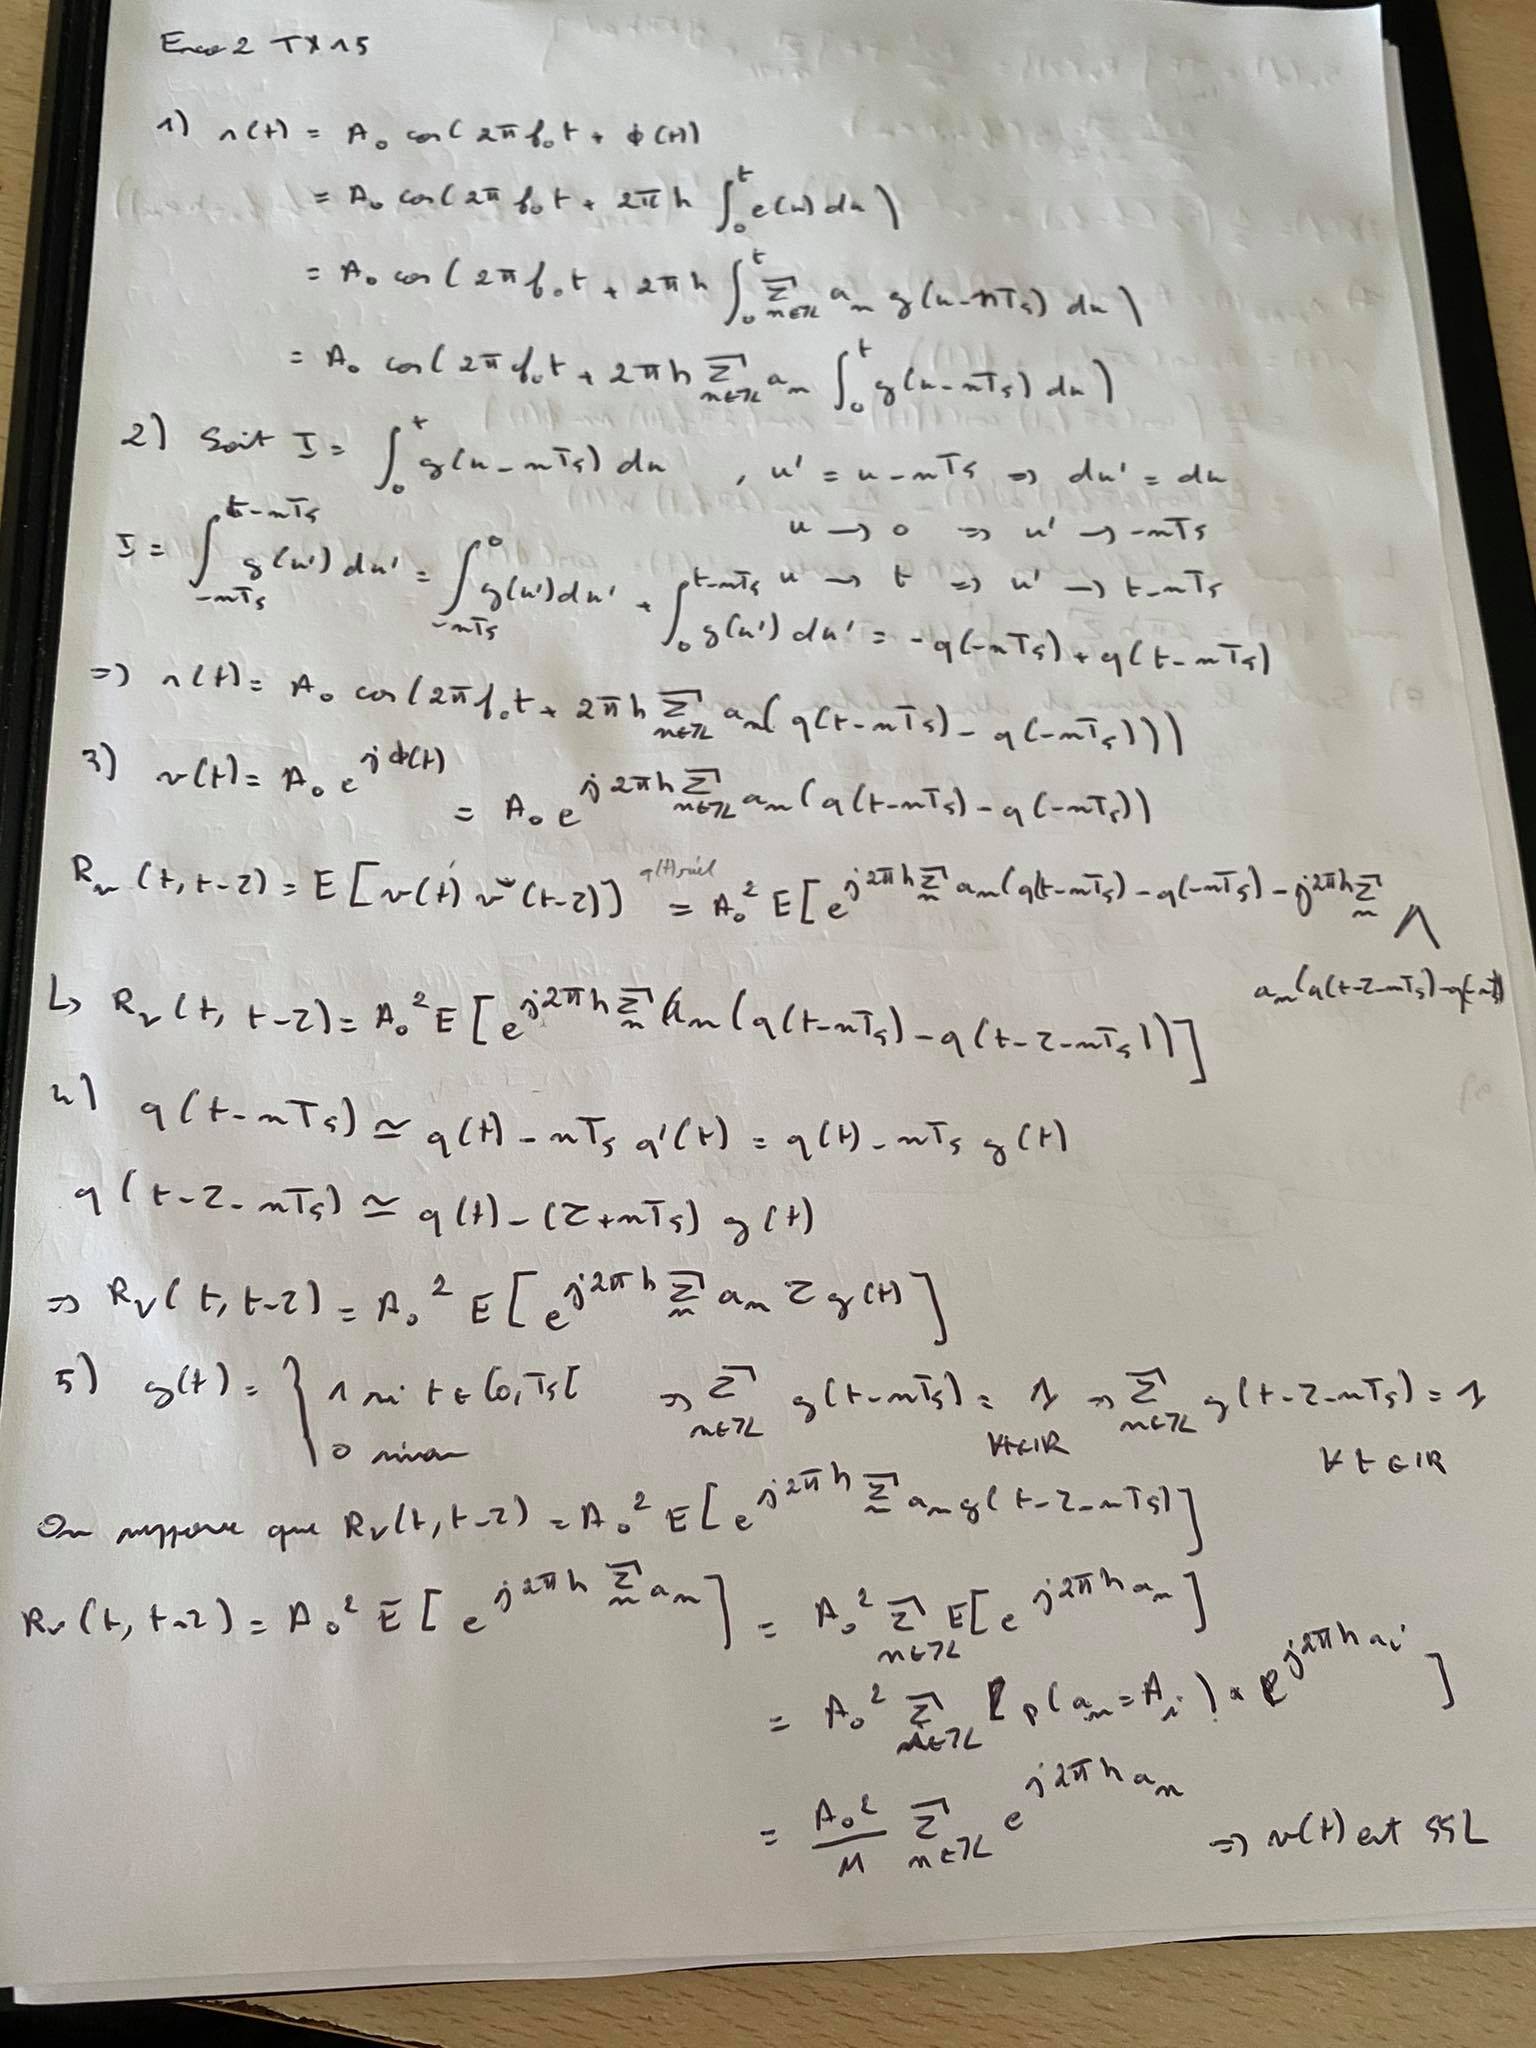 Exo 2 TX 15
1) s(t) = A₀ cos(2π f₀t + ϕ(t))
= A₀ cos(2π f₀t + 2πh ∫₀ᵗ e(u) du)
= A₀ cos(2π f₀t + 2πh ∫₀ᵗ Σ_{n∈ℤ} a_n g(u-nT_s) du)
= A₀ cos(2π f₀t + 2πh Σ_{n∈ℤ} a_n ∫₀ᵗ g(u-nT_s) du)
2) Soit I = ∫₀ᵗ g(u-nT_s) du , u' = u-nT_s ⇒ du' = du
u → 0 ⇒ u' → -nT_s
I = ∫_{-nT_s}^{t-nT_s} g(u') du' = ∫_{-nT_s}^{0} g(u') du' + ∫_{0}^{t-nT_s} g(u') du' = -q(-nT_s) + q(t-nT_s)
u → t ⇒ u' → t-nT_s
⇒ s(t) = A₀ cos(2π f₀t + 2πh Σ_{n∈ℤ} a_n( q(t-nT_s) - q(-nT_s)))
3) v(t) = A₀ e^{jϕ(t)} = A₀ e^{j2πh Σ_{n∈ℤ} a_n(q(t-nT_s) - q(-nT_s))}
R_v(t, t-τ) = E[v(t) v*(t-τ)] q(t) réel = A₀² E[e^{j2πh Σ_n a_n(q(t-nT_s) - q(-nT_s) - j2πh Σ_n
a_n(q(t-τ-nT_s) - q(-nT_s))
↳ R_v(t, t-τ) = A₀² E[e^{j2πh Σ_n a_n(q(t-nT_s) - q(t-τ-nT_s))}]
4) q(t-nT_s) ≃ q(t) - nT_s q'(t) = q(t) - nT_s g(t)
q(t-τ-nT_s) ≃ q(t) - (τ+nT_s) g(t)
⇒ R_v(t, t-τ) = A₀² E[e^{j2πh Σ_n a_n τ g(t)}]
5) g(t) = { 1 si t ∈ [0,T_s[ ⇒ Σ_{n∈ℤ} g(t-nT_s) = 1 ⇒ Σ_{n∈ℤ} g(t-τ-nT_s) = 1
0 sinon ∀t∈ℝ ∀t∈ℝ
On suppose que R_v(t, t-τ) = A₀² E[e^{j2πh Σ_n a_n g(t-τ-nT_s)}]
R_v(t, t-τ) = A₀² E[e^{j2πh Σ_n a_n}] = A₀² Σ_{n∈ℤ} E[e^{j2πh a_n}]
= A₀² Σ_{n∈ℤ} [p(a_n = A_i) × e^{j2πh a_i}]
= A₀²/M Σ_{n∈ℤ} e^{j2πh a_n} ⇒ v(t) est SSL